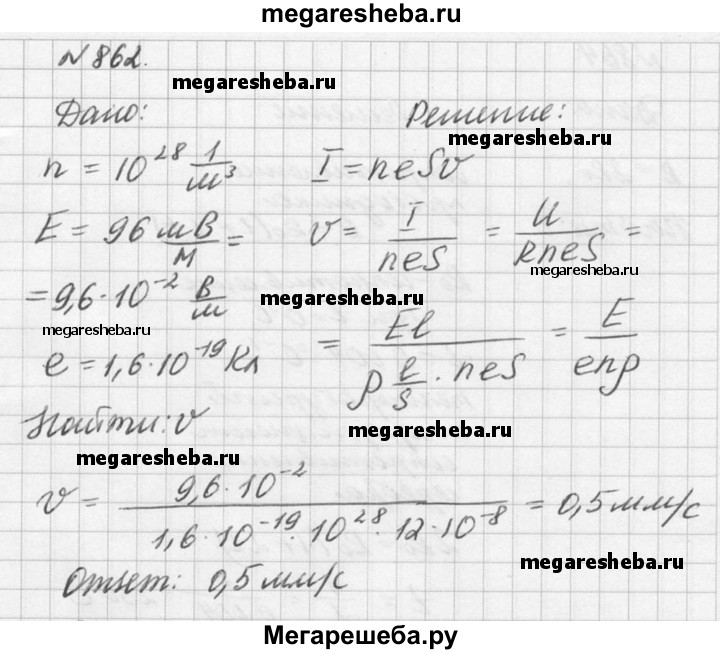 megaresheba.ru
N 862.
megaresheba.ru
Дано:
Решение:
megaresheba.ru
n = 10^28 1/м^3
I = neSv
E = 96 мВ/м =
v = I/neS = U/RneS =
megaresheba.ru
= 9,6·10^-2 В/м
megaresheba.ru
megaresheba.ru
e = 1,6·10^-19 Кл
= El/(ρ l/S · neS) = E/enρ
Найти: v
megaresheba.ru
megaresheba.ru
v = 9,6·10^-2/(1,6·10^-19·10^28·12·10^-8) = 0,5 мм/с
megaresheba.ru
Ответ: 0,5 мм/с
Мегарешеба.ру